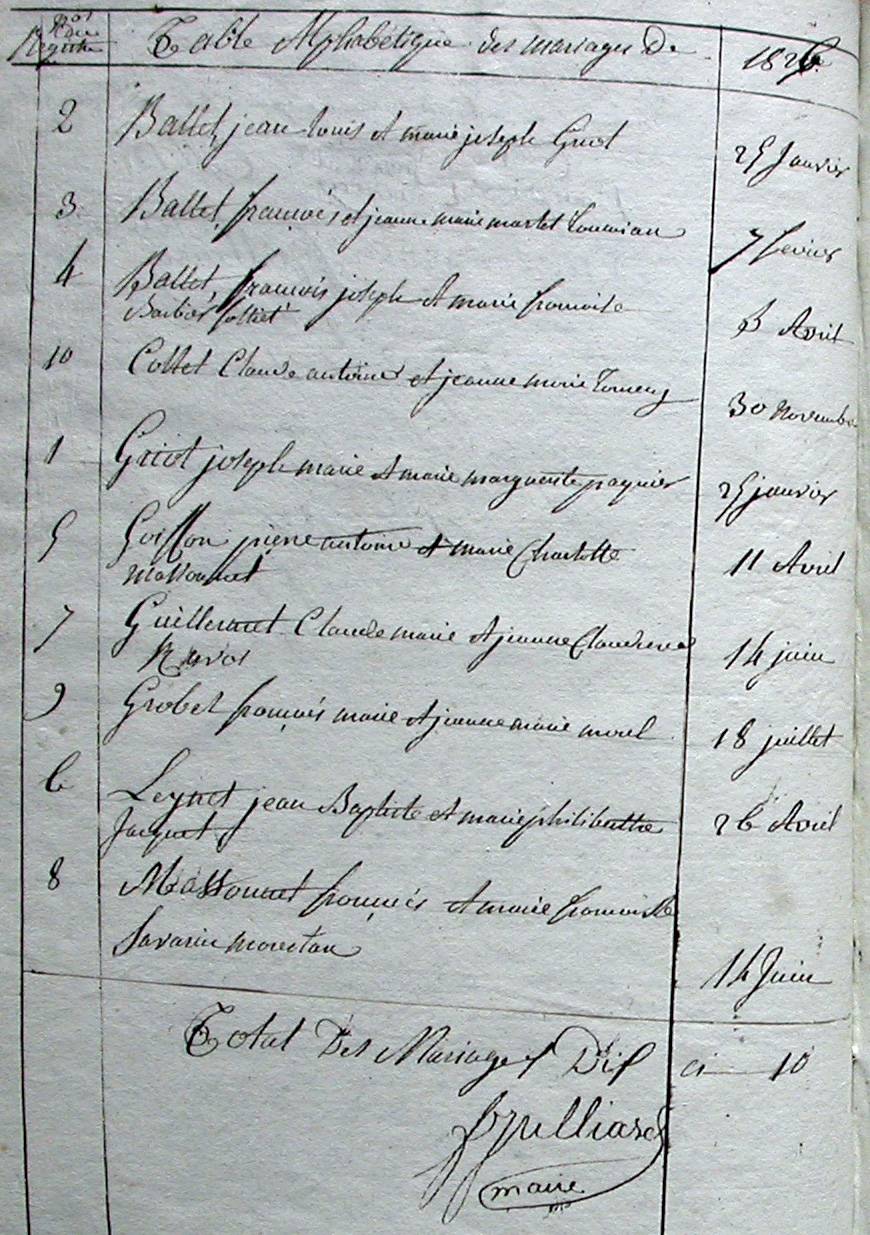 Nos du Registre Table Alphabétique des mariages De 1826.
2 Ballet, jean Louis et marie joseph Griot 25 Janvier
3 Ballet, françois et jeanne marie martet 7 fevrier
4 Ballet, françois joseph et marie françoise 3 Avril
Barbier
10 Collet Claude antoine et jeanne marie 30 Novembre
1 Griot joseph marie et marie marguerite paquier 25 janvier
5 Goiffon pierre antoine et marie Charlotte 11 Avril
massonnet
7 Guillermet Claude marie et jeanne Claudine 14 juin
Ravos
9 Grobet françois marie et jeanne marie morel 18 juillet
6 Leynet jean Baptiste et marie philiberthe 26 Avril
Jacquet
8 Massonnet françois et marie françoise
Savarin morestan 14 Juin
Total Des Mariages Dix ci 10
maire